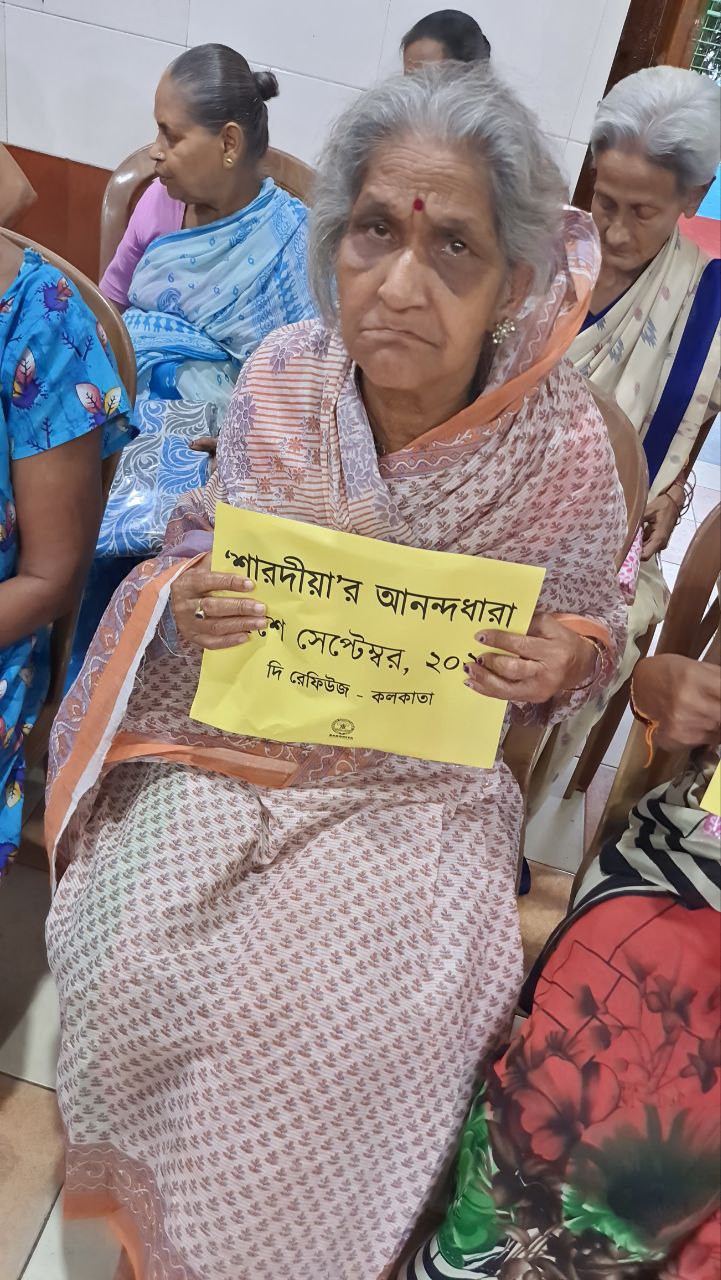 'শারদীয়া'র আনন্দধারা
সেপ্টেম্বর,
দি রেফিউজ - কলকাতা